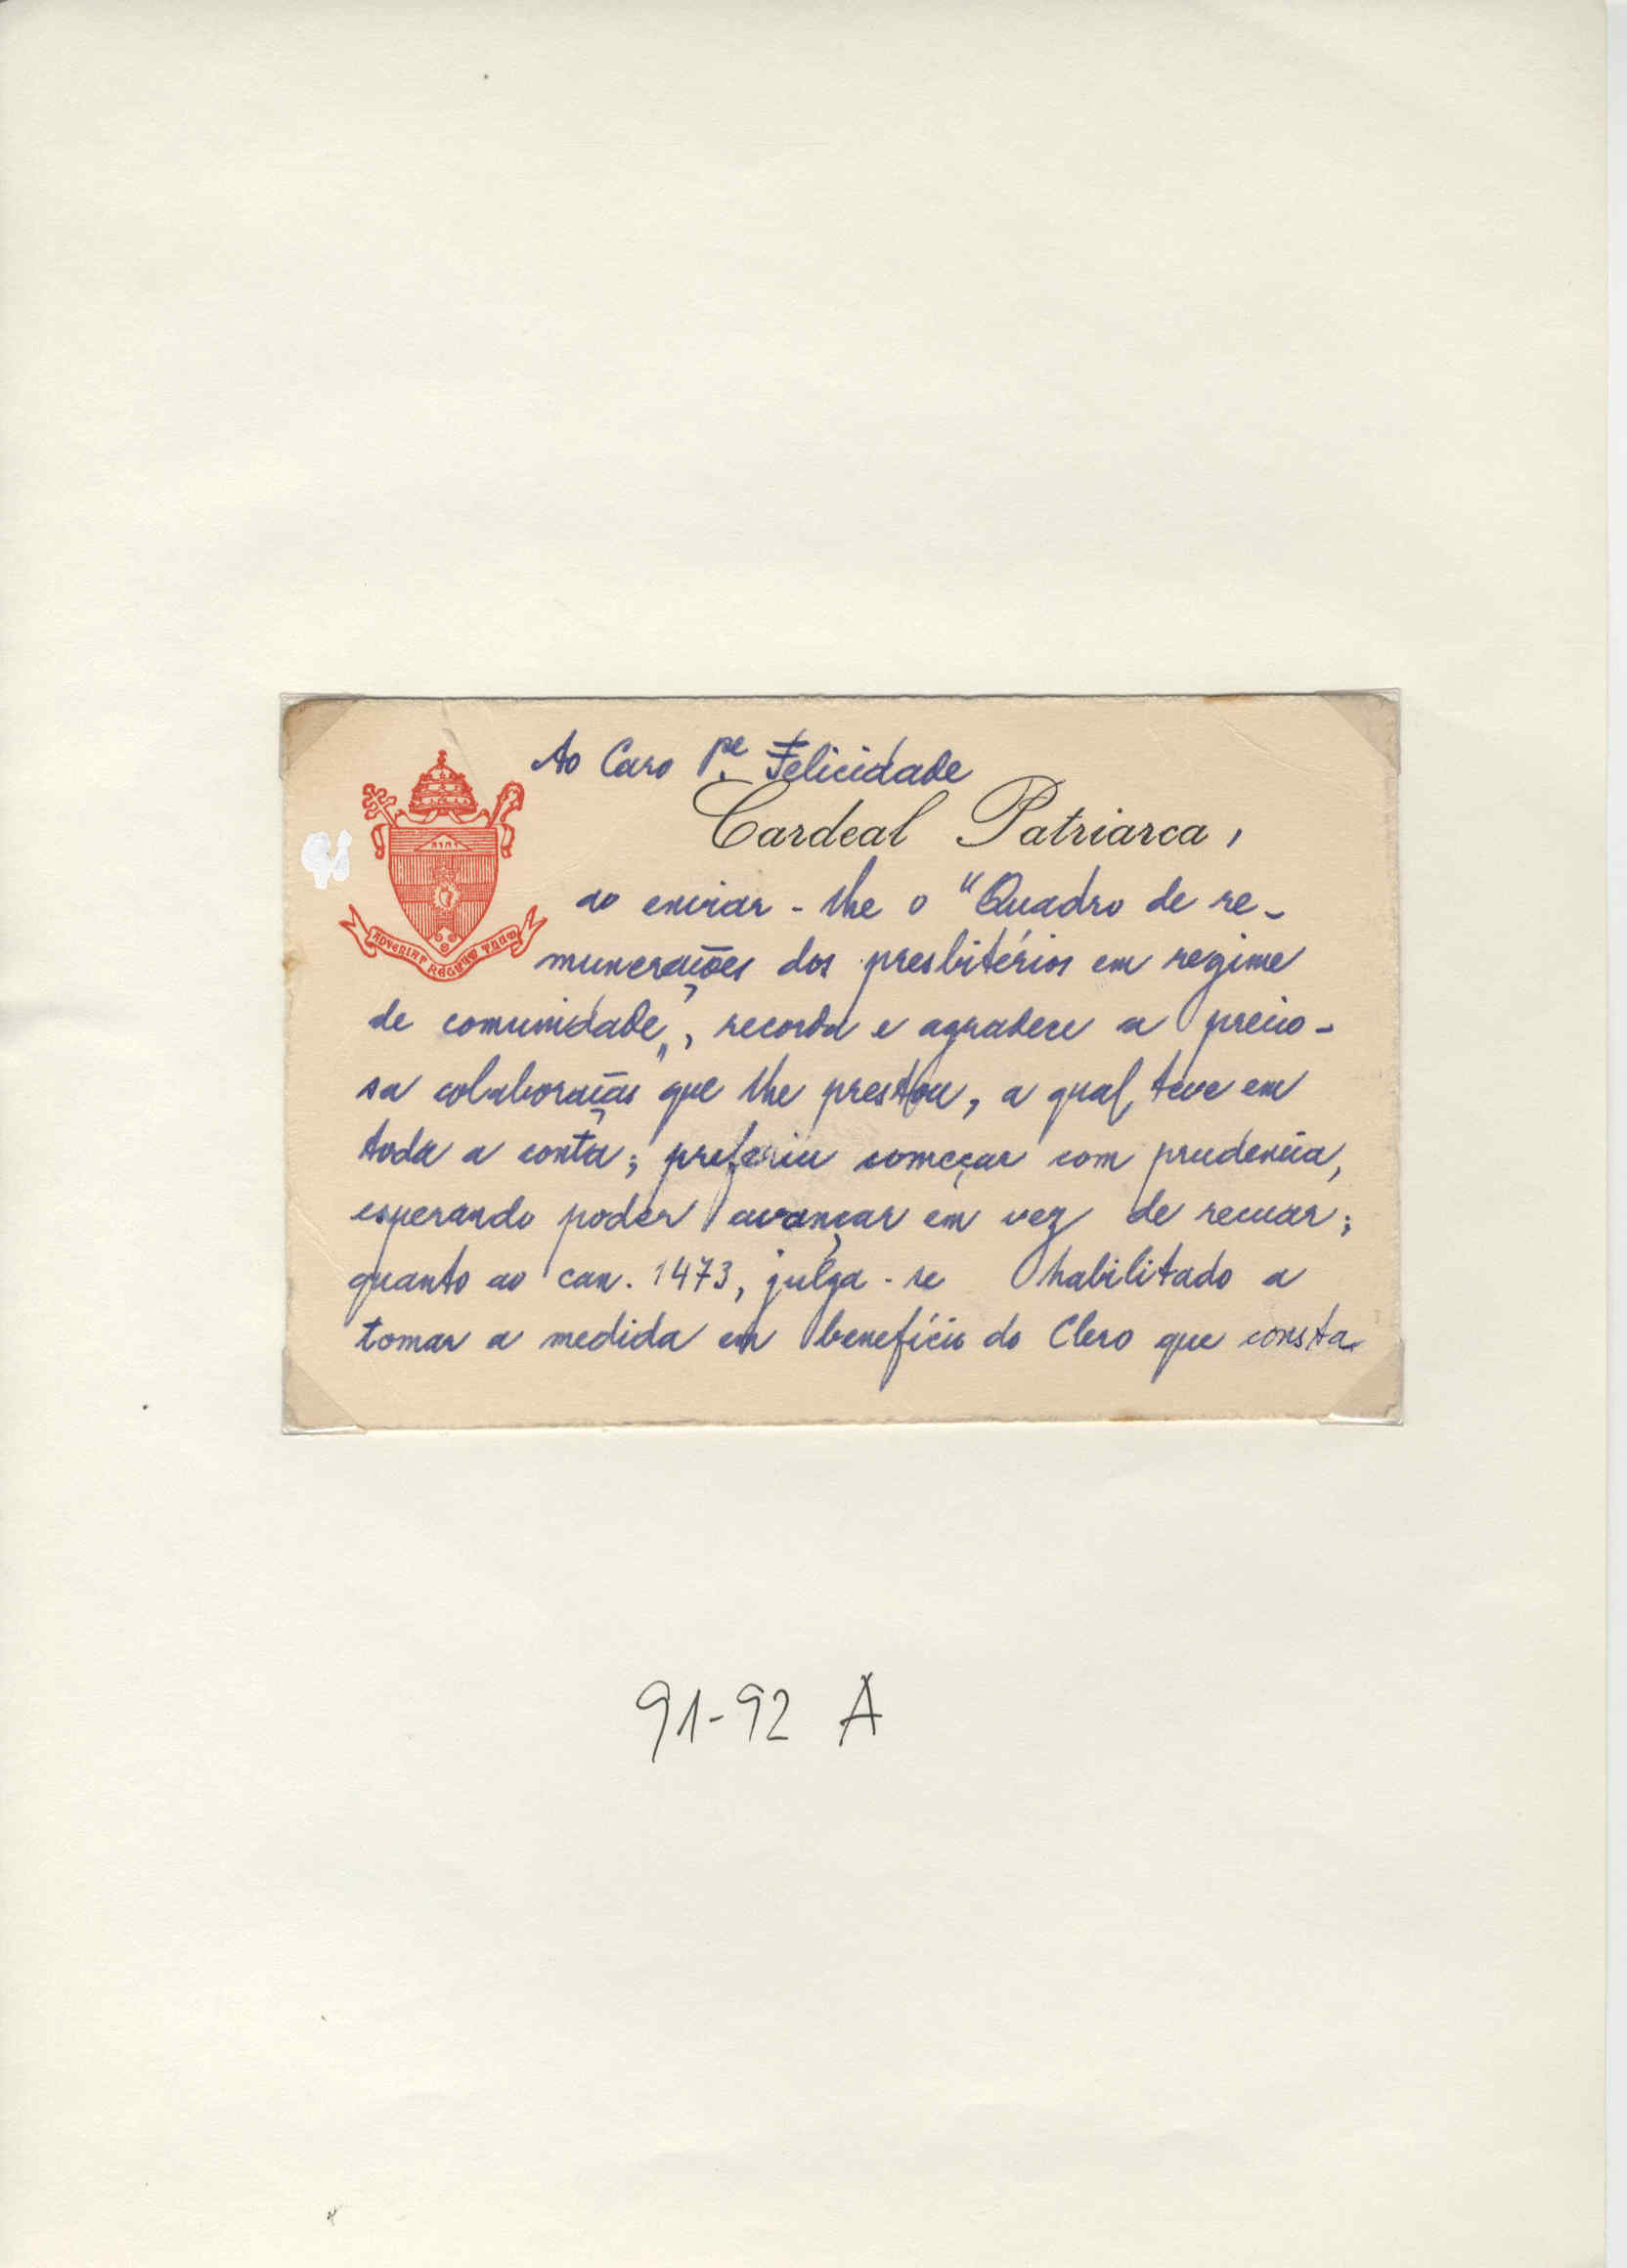 Ao Caro P.e Felicidade
Cardeal Patriarca,
ao enviar-lhe o "Quadro de re-
munerações dos presbitérios em regime
de comunidade", recorda e agradece a precio-
sa colaboração que lhe prestou, a qual teve em
toda a conta; preferiu começar com prudencia,
esperando poder avançar em vez de recuar;
quanto ao can. 1473, julga-se habilitado a
tomar a medida em benefício do Clero que consta
ADVENIAT REGNUM TUUM
91
91-92 A